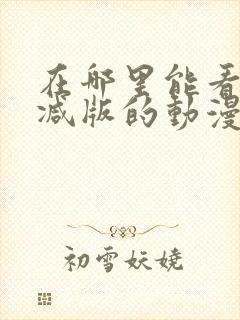 在哪里能看
减版的動漫
初雪妖娆